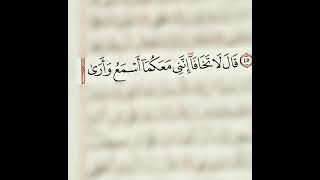 ٤٥ قَالَ لَا تَخَافَآ إِنَّنِى مَعَكُمَآ أَسْمَعُ وَأَرَىٰ